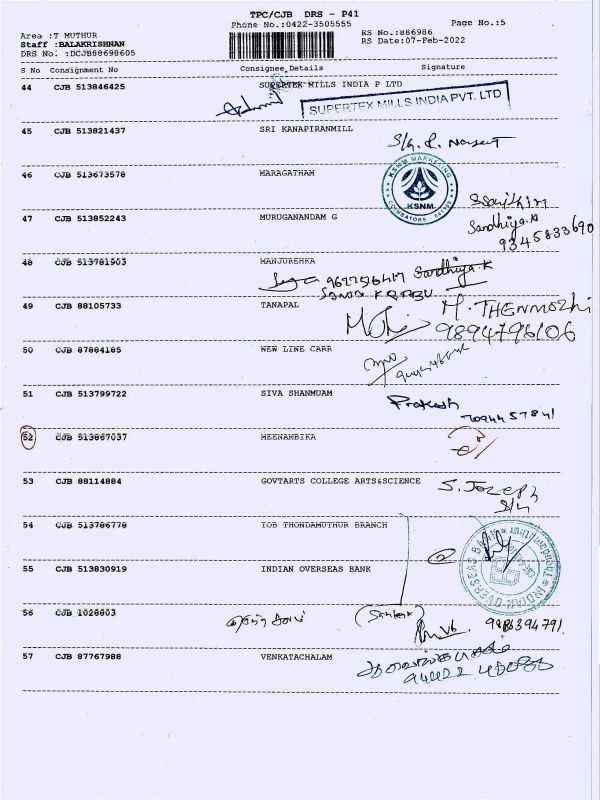 TPC/CJB DRS - P41
Phone No.:0422-3505555
Page No.:5
Area :T MUTHUR
Staff :BALAKRISHNAN
DRS No. :DCJB88698605
RS No.:886986
RS Date:07-Feb-2022
S No Consignment No Consignee Details Signature
44 CJB 513846425 SUPERTEX MILLS INDIA P LTD
SUPERTEX MILLS INDIA PVT. LTD
45 CJB 513821437 SRI KANAPIRANMILL
46 CJB 513673578 MARAGATHAM
KSNM MARKETING
KSNM
COIMBATORE
47 CJB 513852243 MURUGANANDAM G
Sandhiya.A
9345833690
48 CJB 513781903 MANJUREHKA
Sandhiya.K
49 CJB 88105733 TANAPAL
M. THENMOZHI
9894796106
50 CJB 87884185 NEW LINE CARR
51 CJB 513799722 SIVA SHANMUAM
Prakash
7094457841
52 CJB 513867037 MEENAMBIKA
53 CJB 88114884 GOVTARTS COLLEGE ARTS&SCIENCE
S. Jozeph
54 CJB 513786778 IOB THONDAMUTHUR BRANCH
2
INDIAN OVERSEAS BANK
55 CJB 513830919 INDIAN OVERSEAS BANK
56 CJB 1028803
57 CJB 87767988 VENKATACHALAM